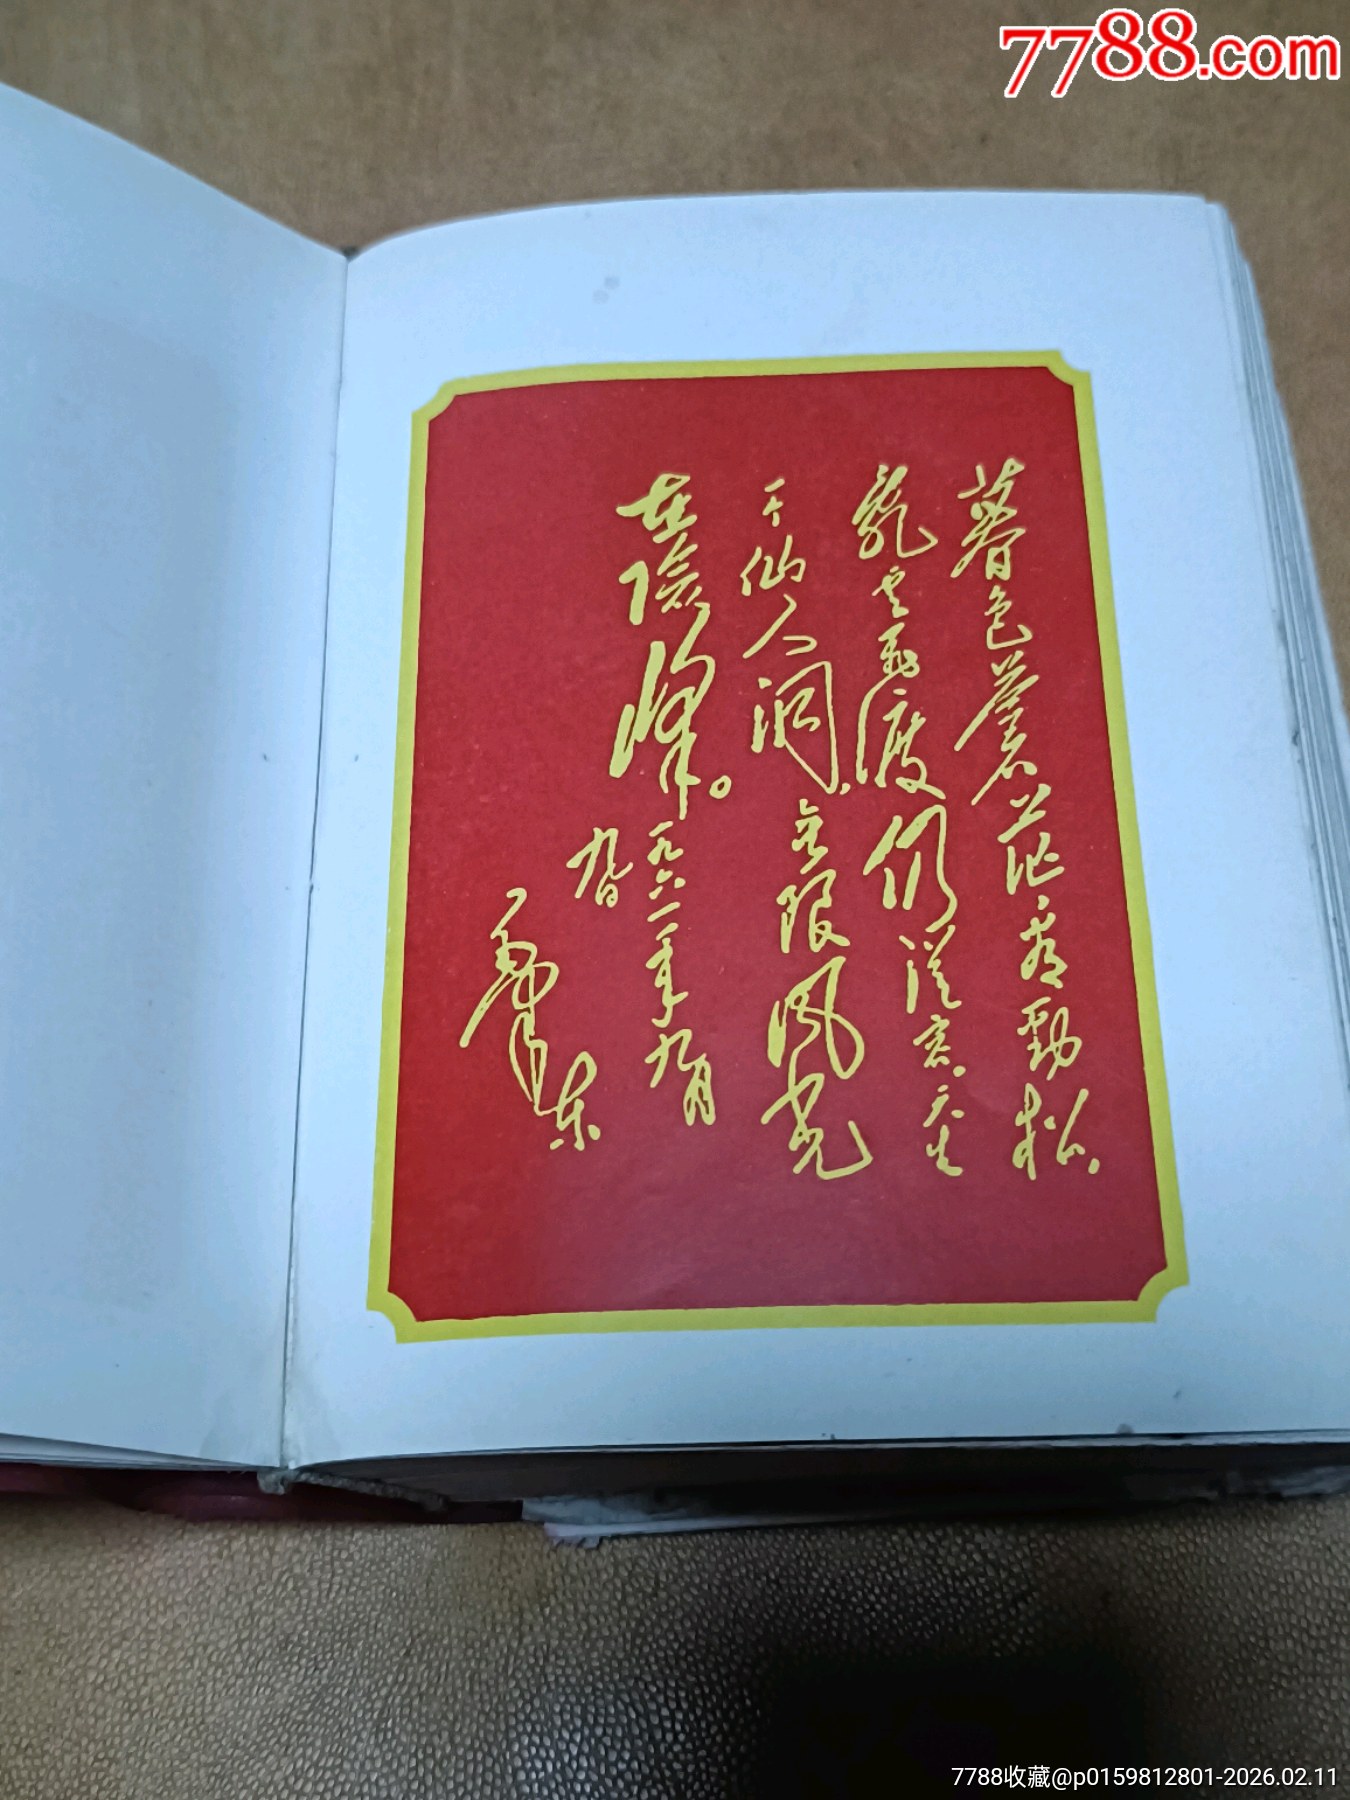 7788.com
暮色蒼茫看勁松。
亂云飛渡仍從容。天生
一个仙人洞,无限风光
在險峰。一九六一年九月
九日
毛泽东
7788收藏@p0159812801-2026.02.11